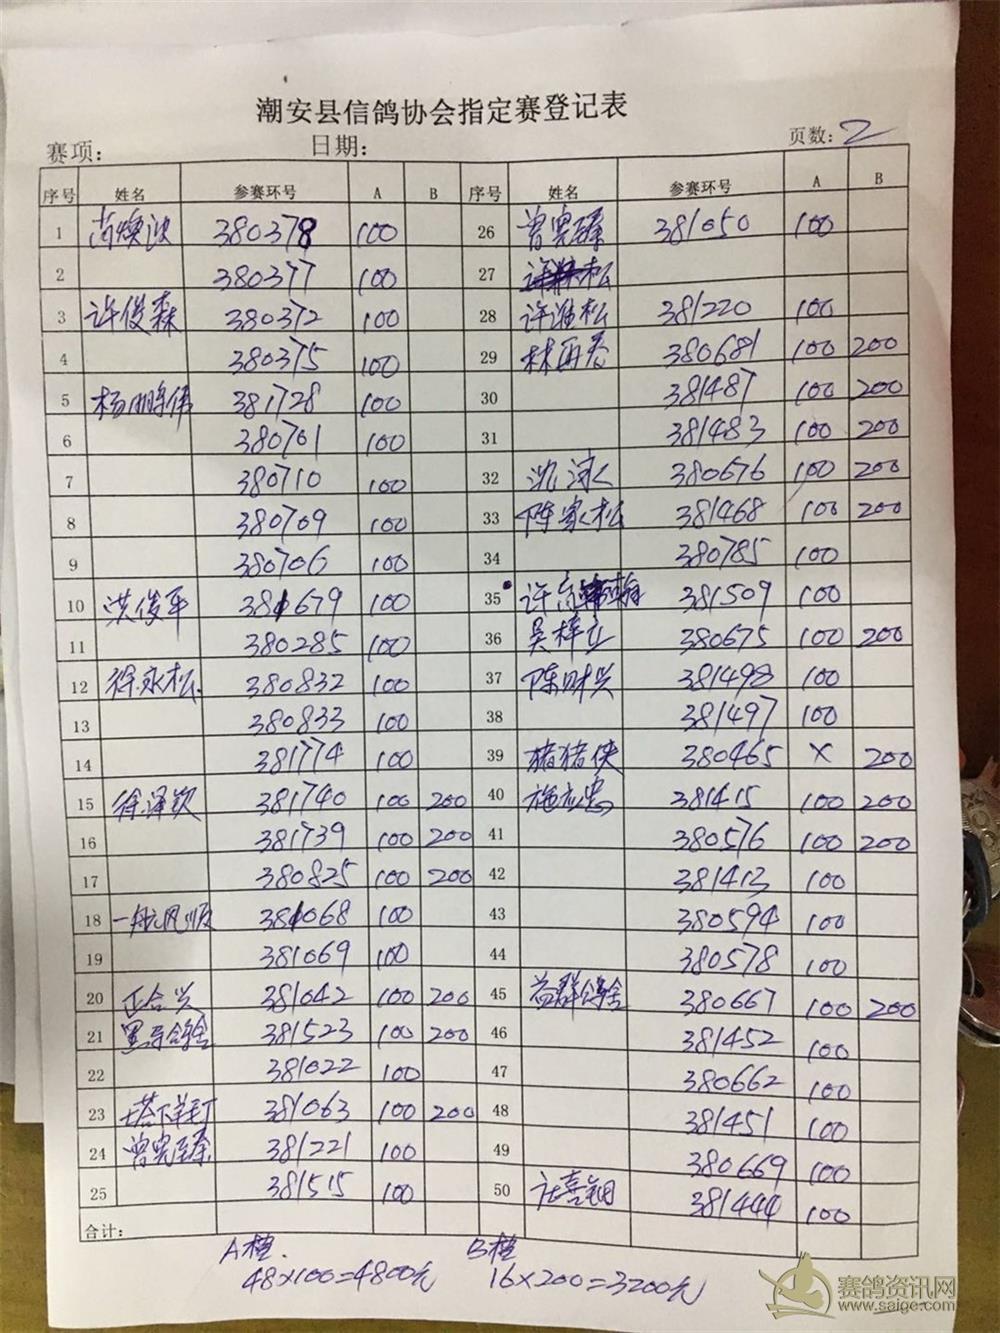 潮安县信鸽协会指定赛登记表
赛项: 日期: 页数: 2
序号 姓名 参赛环号 A B 序号 姓名 参赛环号 A B
1 380378 100 26 381050 100
2 380377 100 27
3 许俊森 380372 100 28 许淮松 381220 100
4 380375 100 29 林再春 380681 100 200
5 381728 100 30 381487 100 200
6 380701 100 31 381483 100 200
7 380710 100 32 380676 100 200
8 380709 100 33 陈家松 381468 100 200
9 380706 100 34 380785 100
10 洪俊平 381679 100 35 381509 100
11 380285 100 36 吴梓立 380675 100 200
12 徐永松 380832 100 37 陈财兴 381498 100
13 380833 100 38 381497 100
14 381774 100 39 猪猪侠 380465 × 200
15 徐泽钦 381740 100 200 40 施应忠 381415 100 200
16 381739 100 200 41 380576 100 200
17 380825 100 200 42 381413 100
18 一帆风顺 381068 100 43 380594 100
19 381069 100 44 380578 100
20 正合兴 381042 100 200 45 益群鸽舍 380667 100 200
21 381523 100 200 46 381452 100
22 381022 100 47 380662 100
23 塔下羊毛丁 381063 100 200 48 381451 100
24 381221 100 49 380669 100
25 381515 100 50 381444 100
合计:
A档. B档
48×100=4800元 16×200=3200元
赛鸽资讯网
www.saige.com